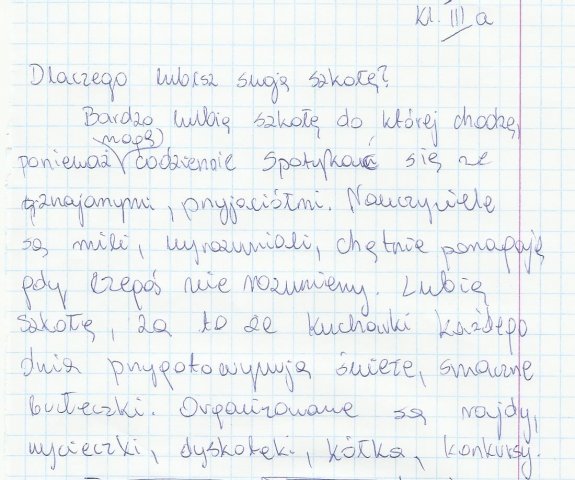 Kl. III a
Dlaczego lubisz swoją szkołę?
Bardzo lubię szkołę do której chodzę,
mogę
ponieważ codziennie spotykać się ze
znajomymi, przyjaciółmi. Nauczyciele
są mili, wyrozumiali, chętnie pomagają
gdy czegoś nie rozumiemy. Lubię
szkołę, za to że kucharki każdego
dnia przygotowywują świeże, smaczne
bułeczki. Organizowane są rajdy,
wycieczki, dyskoteki, kółka, konkursy.